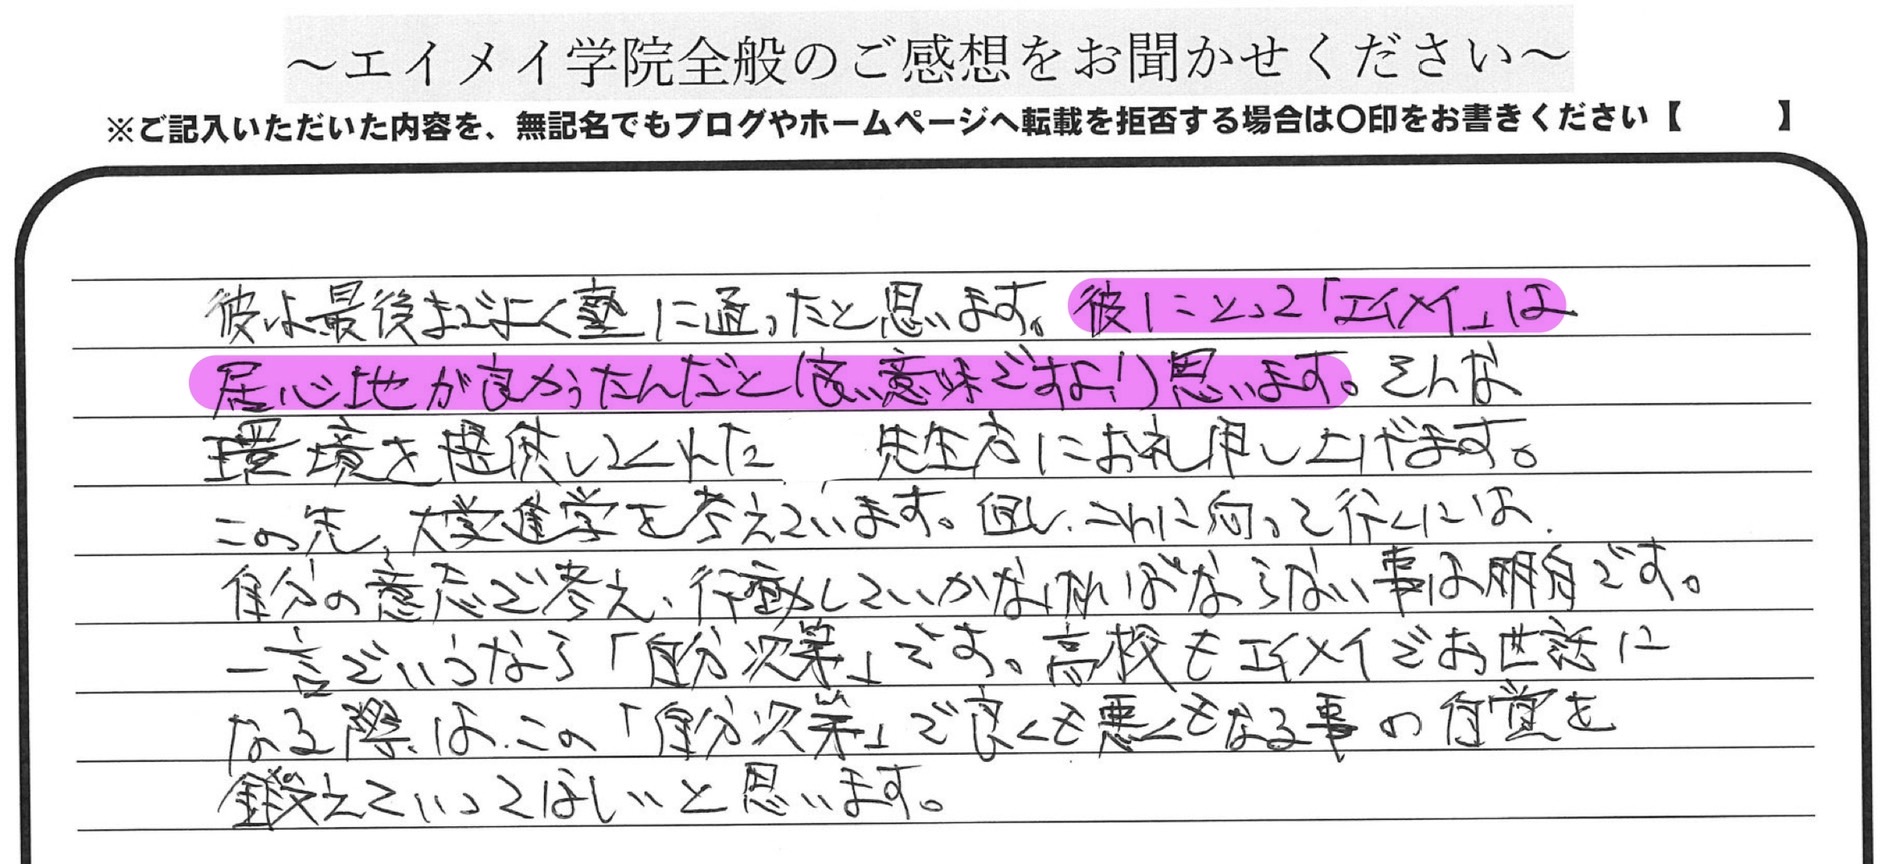 ～エイメイ学院全般のご感想をお聞かせください～
※ご記入いただいた内容を、無記名でもブログやホームページへ転載を拒否する場合は〇印をお書きください【　　　】
彼は最後までよく塾に通ったと思います。彼にとって「エイメイ」は
居心地が良かったんだと(良い意味ですよ!)思います。そんな
環境を提供してくれた　　先生方にお礼申し上げます。
この先、大学進学を考えています。但し、これに向って行くには、
自分の意志で考え、行動していかなければならない事は明白です。
一言でいうなら「自分次第」です。高校もエイメイでお世話に
なる際は、この「自分次第」で良くも悪くもなる事の自覚を
鍛えていってほしいと思います。